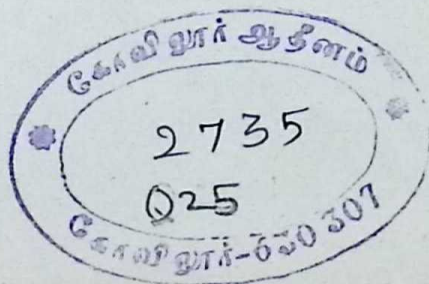 கோவிலூர் ஆதீனம்
2735
Q25
கோவிலூர்-630 307